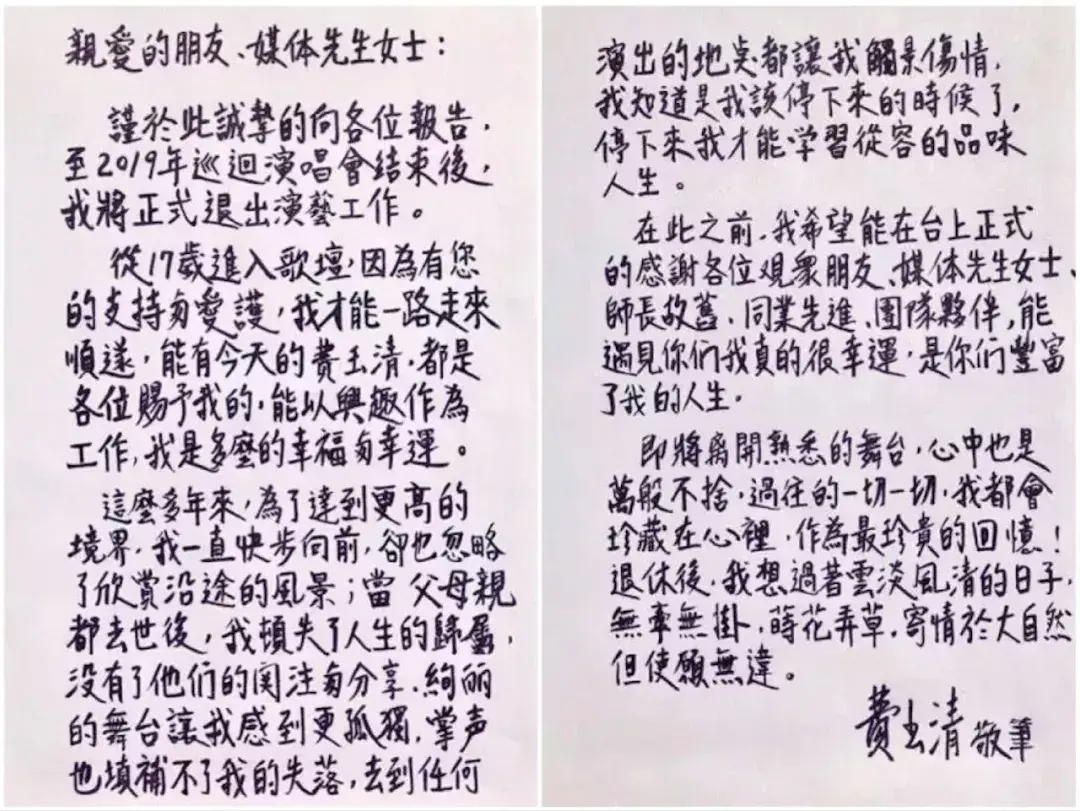 親愛的朋友、媒体先生女士：
謹於此誠摯的向各位報告，
至2019年巡迴演唱會结束後，
我將正式退出演藝工作。
從17歲進入歌壇，因為有您
的支持与愛護，我才能一路走來
順遂，能有今天的費玉清，都是
各位賜予我的，能以興趣作為
工作，我是多麼的幸福与幸運。
這麼多年來，為了達到更高的
境界，我一直快步向前，卻也忽略
了欣賞沿途的風景；當父母親
都去世後，我頓失了人生的歸屬，
没有了他们的関注与分享，絢丽
的舞台讓我感到更孤獨，掌声
也填補不了我的失落，去到任何
演出的地点都讓我觸景傷情，
我知道是我該停下來的時候了，
停下來我才能学習從容的品味
人生。
在此之前，我希望能在台上正式
的感謝各位观衆朋友、媒体先生女士、
師長故舊、同業先進、團隊夥伴，能
遇見你們我真的很幸運，是你們豐富
了我的人生。
即將离開熟悉的舞台，心中也是
萬般不捨，過往的一切一切，我都會
珍藏在心裡，作為最珍貴的回憶！
退休後，我想過著雲淡風清的日子，
無牽無掛，蒔花弄草，寄情於大自然
但使願無違。
費玉清 敬筆